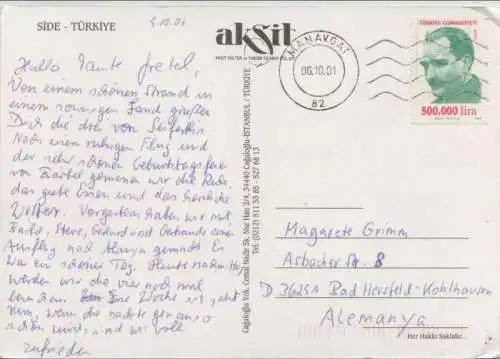 SIDE - TÜRKİYE
5.10.01
Hallo Tante Gretel,
Von einem schönen Strand in
einem sonnigen Land grüßen
Dich die drei von Seiferths
Nach einem ruhigen Flug und
der sehr schönen Geburtstagsfeier
von Bärbel genießen wir die Ruhe,
das gute Essen und das herrliche
Wetter. Vorgestern haben wir mit
Bärbel, Steve, Gerhard und Gertraude einen
Ausflug nach Alanya gemacht. Es
war ein schöner Tag. Heute nachmittag
werden wir die vier noch mal
besuchen. Eine Woche ist jetzt
rum, wenn die nächste genauso
schön wird, sind wir voll
zufrieden
akşit
Cağaloğlu Yok. Cemal Nadir Sk. Nur Han 2/4, 34440 Cağaloğlu-İSTANBUL / TÜRKİYE
Tel: (0212) 511 33 85 - 527 68 13
MANAVGAT
06.10.01
82
TÜRKİYE CUMHURİYETİ
500.000 lira
Magarete Grimm
Asbacher Str. 8
D 36251 Bad Hersfeld-Kohlhausen
Alemanya
Her Hakkı Saklıdır.